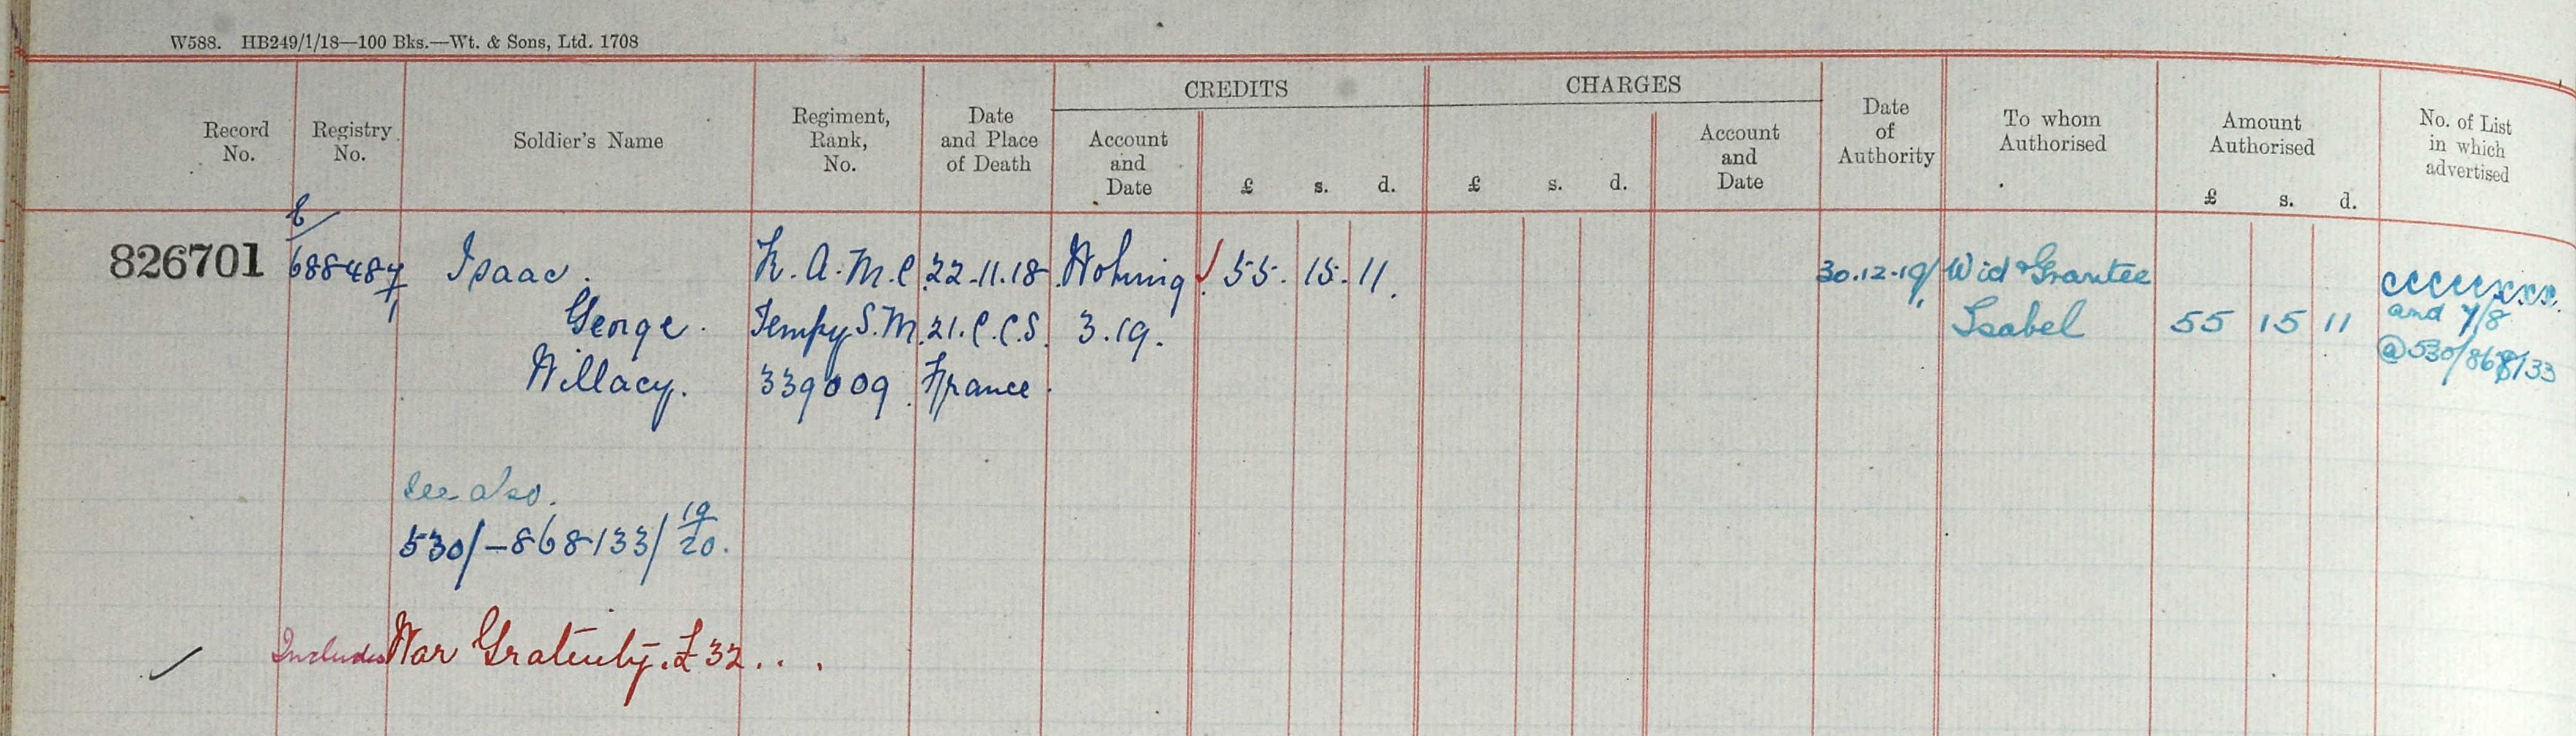 W588. HB249/1/18—100 Bks.—Wt. & Sons, Ltd. 1708
CREDITS
CHARGES
Record No.
Registry No.
Soldier's Name
Regiment, Rank, No.
Date and Place of Death
Account and Date
£ s. d.
£ s. d.
Account and Date
Date of Authority
To whom Authorised
Amount Authorised
£ s. d.
No. of List in which advertised
E/
826701 688487/1 Isaac. R.A.M.C 22.11.18 Woking 55. 15. 11. 30.12.19 Wid & Grantee
George. Tempy S.M. 21.C.C.S. 3.19. Isabel 55 15 11 and 7/8
Willacy. 339009. France. @530/868133
See also.
530/-868133/19/20.
Includes War Gratuity. £32...